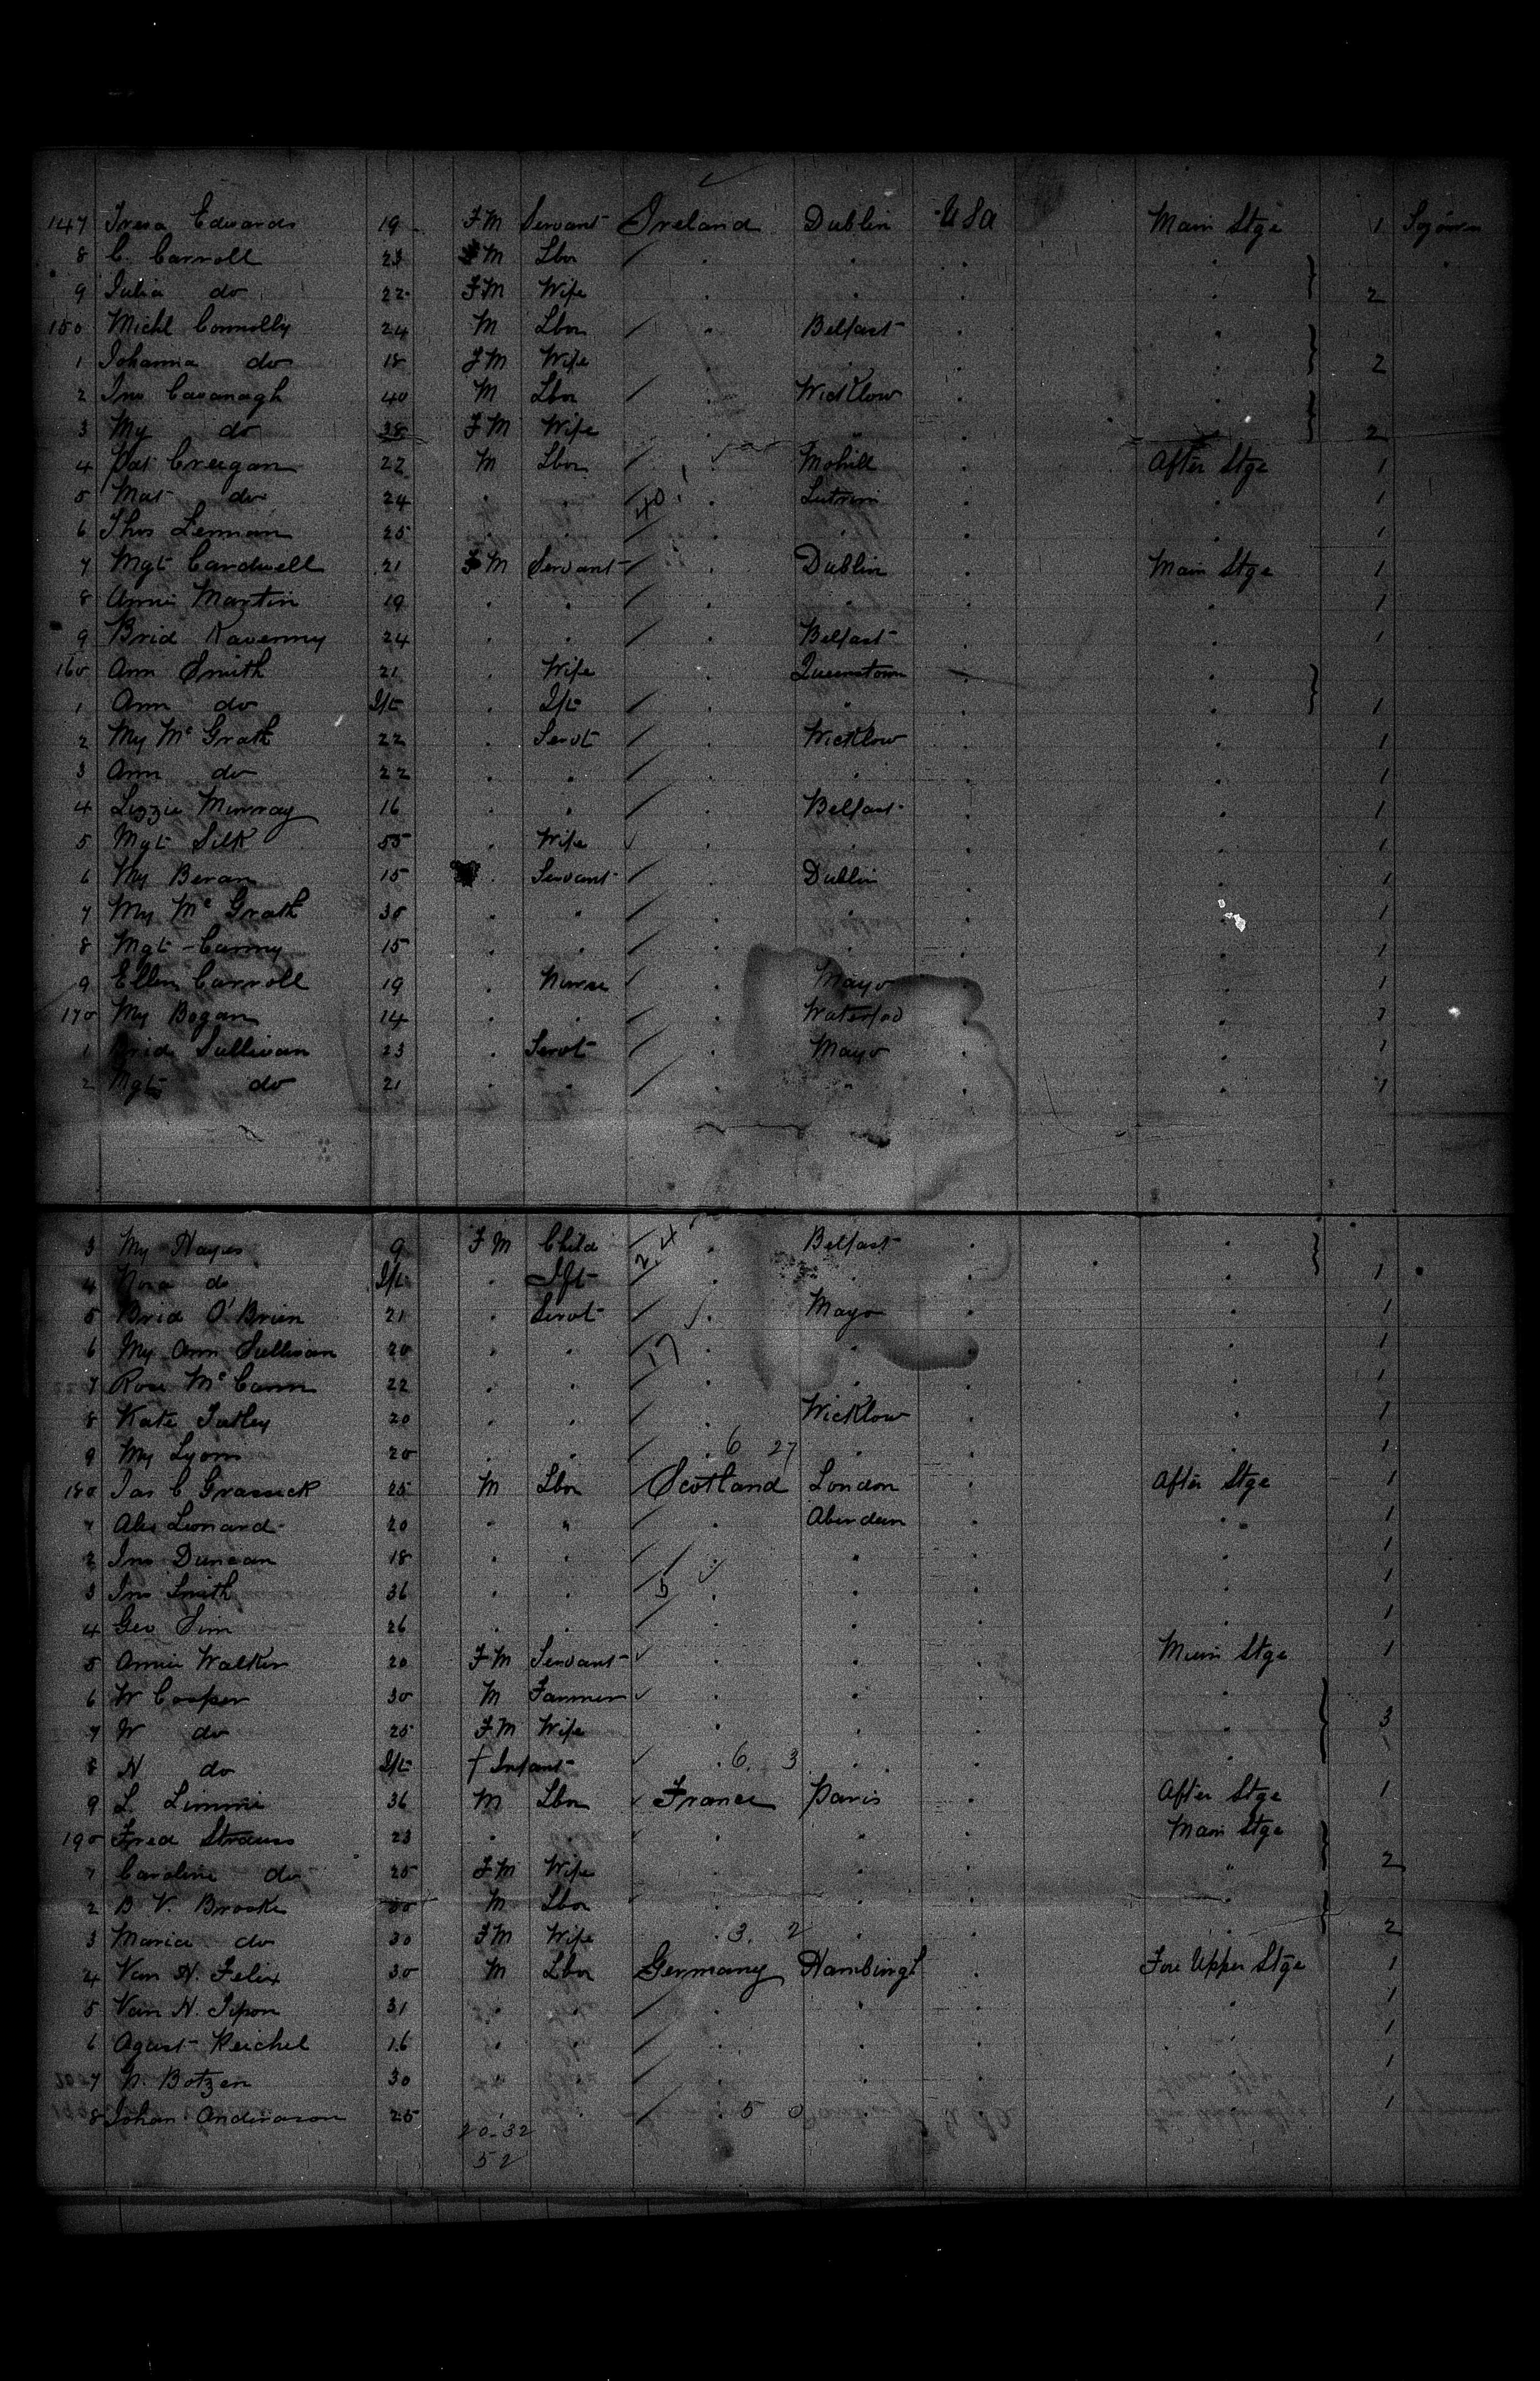 147 Tresa Edwards 19 FM Servant Ireland Dublin USA Main Stge 1 Sojourn
8 C. Carroll 23 M Lbor " " " "
9 Julia do 22 FM Wife " " " " 2
150 Michl Connolly 24 M Lbor " Belfast " "
1 Johanna do 18 FM Wife " " 2
2 Jno Cavanagh 40 M Lbor Wicklow " "
3 My do 38 FM Wife " " " 2
4 Pat Creegan 22 M Lbor Mohill " After Stge 1
5 Mat do 24 " " 40 " Lutrim " " 1
6 Thos Lennan 25 " " " " " " 1
7 Mgt Cardwell 21 FM Servant " Dublin " Main Stge 1
8 Annie Martin 19 " " " " " " 1
9 Brid Kavenny 24 " " " Belfast " " 1
160 Ann Smith 21 " Wife Queenstown "
1 Ann do Ift " Ift " " " 1
2 My McGrath 22 " Servt " Wicklow " " 1
3 Ann do 22 " " " " " " 1
4 Lizzie Murray 16 " " " Belfast " " 1
5 Mgt Silk 55 " Wife " " " 1
6 My Beran 15 Servant " Dublin " " 1
7 My McGrath 30 " " " " " " 1
8 Mgt Canny 15 " " " " " " 1
9 Ellen Carroll 19 " Nurse " Mayo " " 1
170 My Bogan 14 " " " Waterfod " " 1
1 Brid Sullivan 23 " Servt " Mayo " " 1
2 Mgt do 21 " " " " " " 1
3 My Hayes 9 FM Child 24 " Belfast " "
4 Nora do Ift " Ift " " " " 1
5 Brid O'Brien 21 " Servt " Mayo " " 1
6 My Ann Sullivan 20 " " 17 " " " " 1
7 Rose McCann 22 " " " " " " 1
8 Kate 20 " " " Wicklow " " 1
9 My Lyons 20 " " " 6 27 " " " 1
180 Jas C Grassick 25 M Lbor Scotland London " After Stge 1
1 Alex Leonard 20 " " " Aberdeen " " 1
2 Jno Duncan 18 " " " " " " 1
3 Jno Smith 36 " " 5 " " " " 1
4 Geo Sim 26 " " " " " " 1
5 Annie Walker 20 FM Servant " " " Main Stge 1
6 W Cooper 30 M Farmer " " " "
7 W do 25 FM Wife " " " " 3
8 N do Ift f Infant " 6. 3 " " "
9 L. Limmie 36 M Lbor France Paris " After Stge 1
190 Fred Strauss 23 " " " " Main Stge
1 Caroline do 25 FM Wife " " " " 2
2 B V. Brooke 30 M Lbor " " "
3 Maria do 30 FM Wife " 3. 2 " " " 2
4 Van H. Felix 30 M Lbor Germany Hamburg " Fore Upper Stge 1
5 Van N. Tipon 31 " " " " " " 1
6 Agust Reichel 16 " " " " " " 1
7 G. Botzen 30 " " " " " 1
8 Johan Anderason 25 " " " 5 0 1
20-32
52